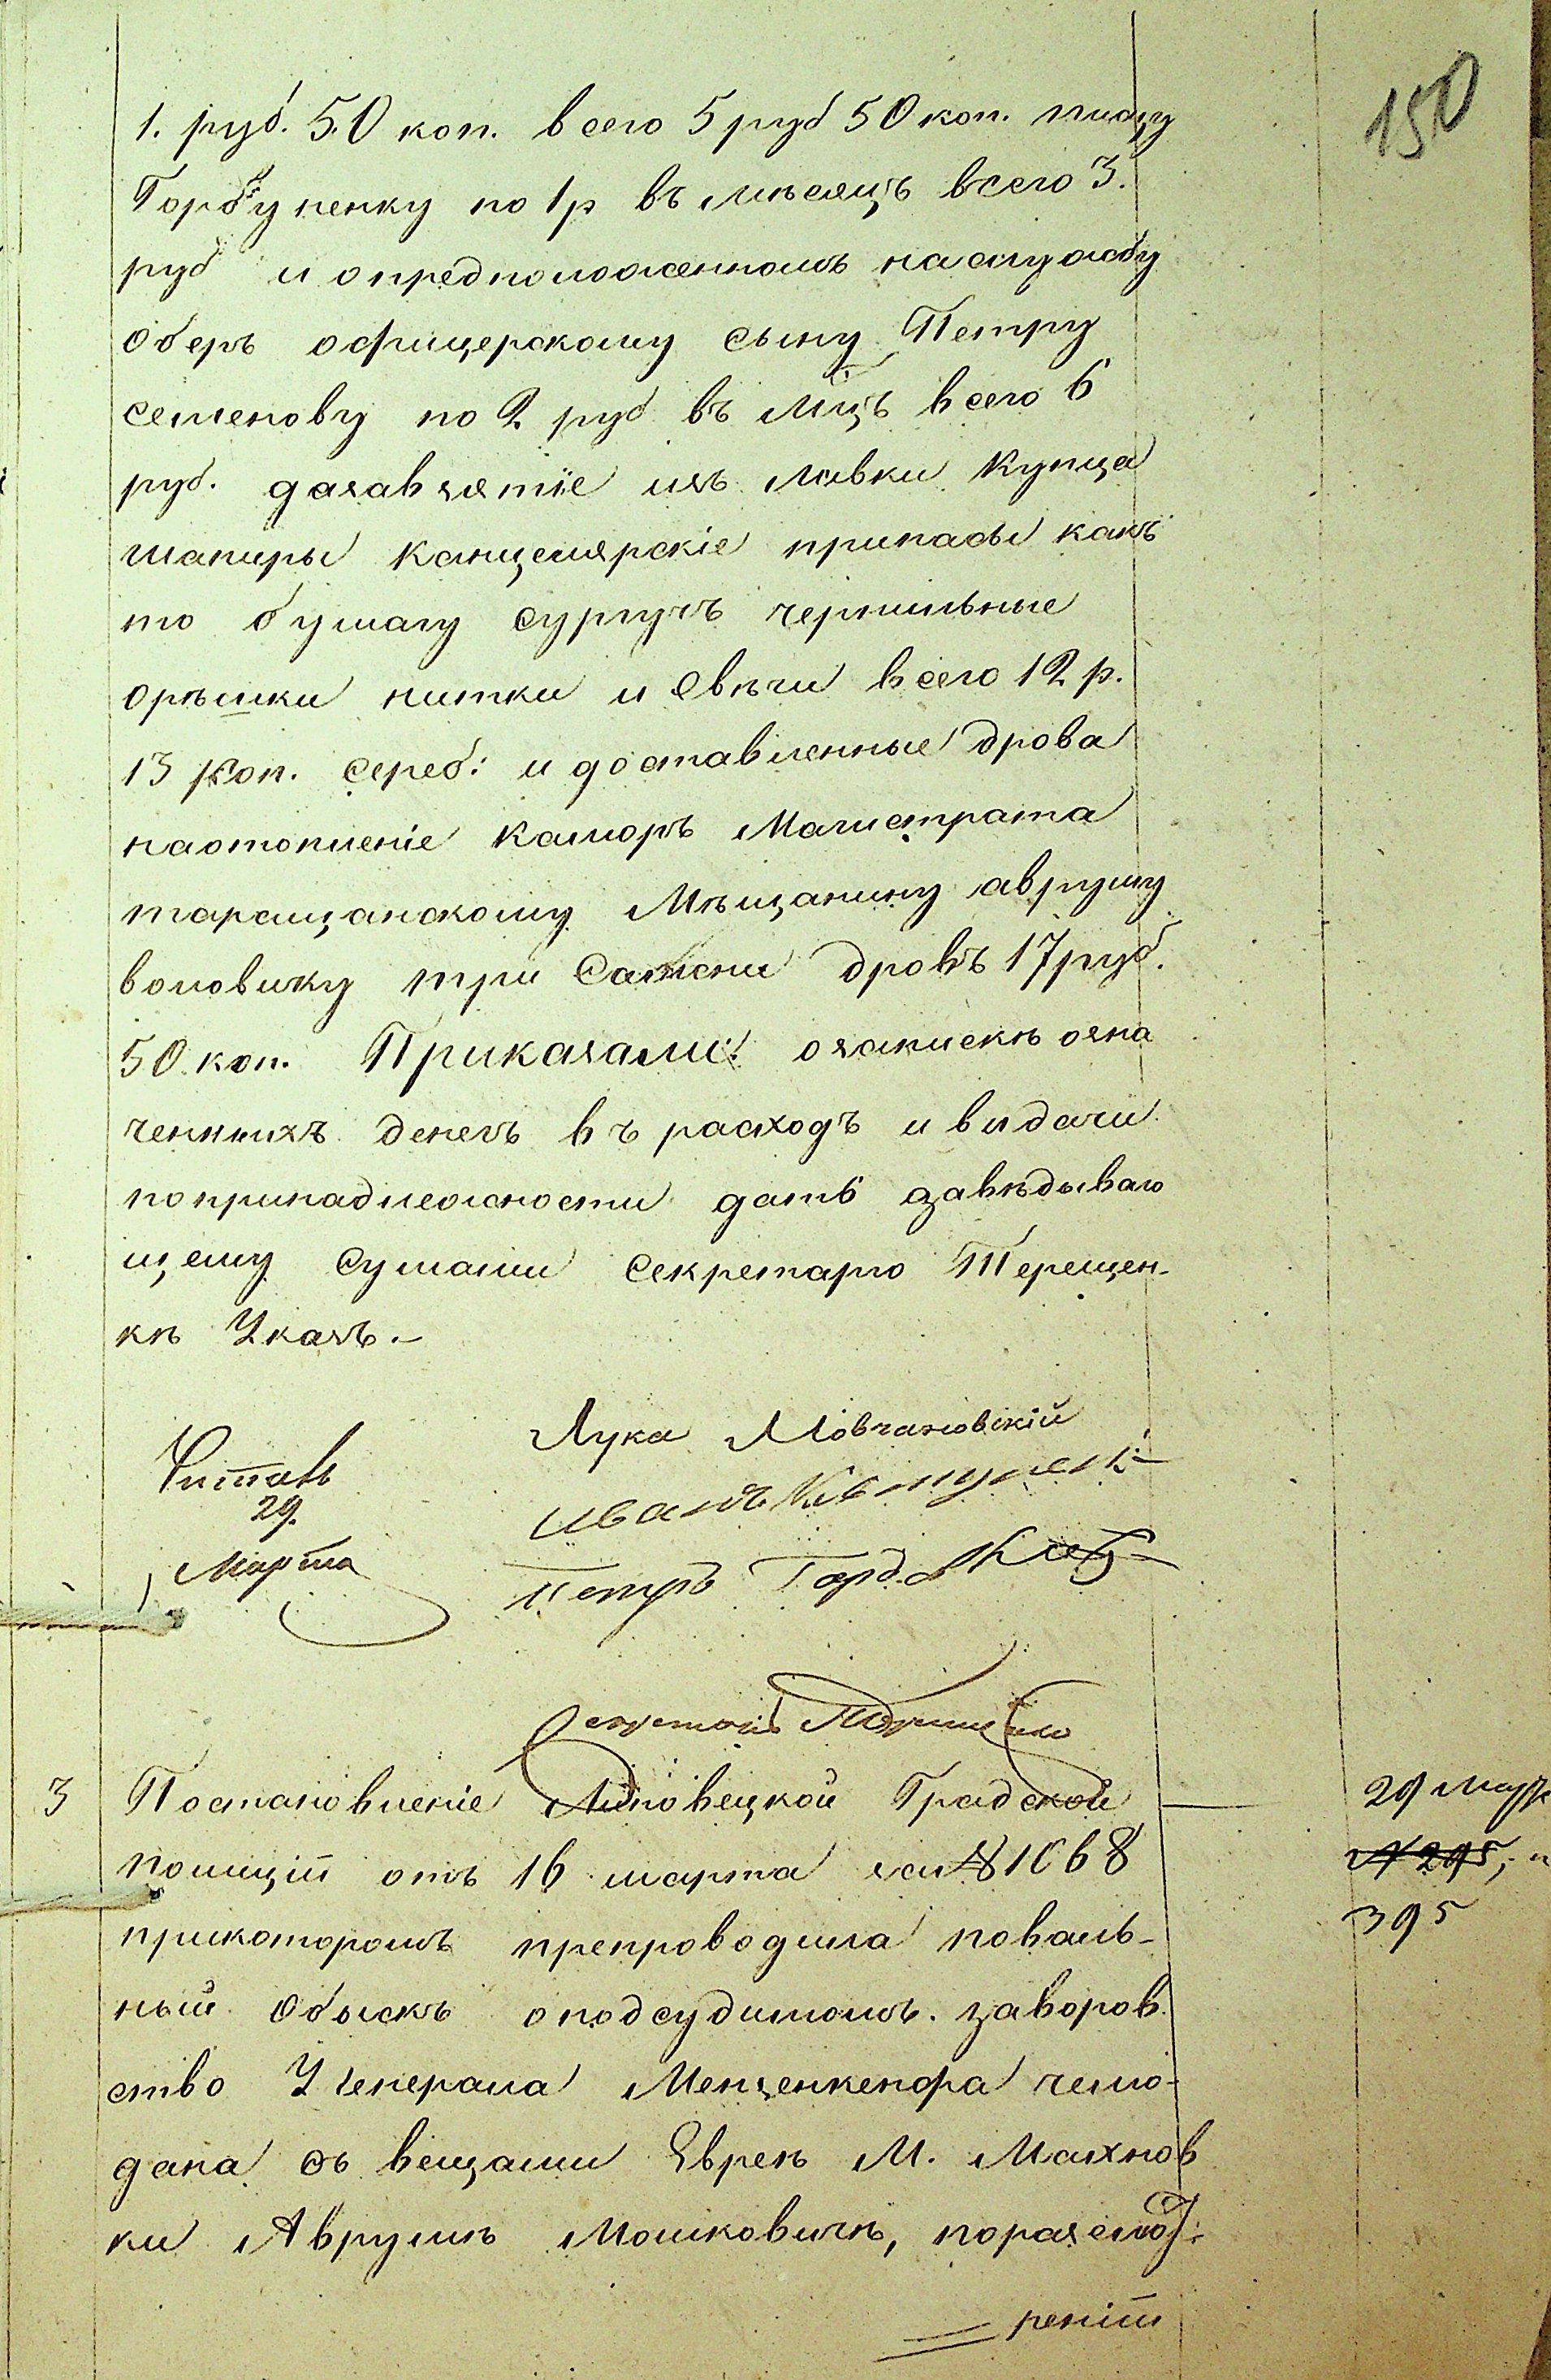 150
1. руб. 50 коп. всего 5 руб 50 коп. писцу
Горбуненку по 1 р въ мѣсяцъ всего 3.
руб и опредположенномъ наслужбу
оберъ офицерскому сыну Петру
семенову по 2 руб въ Мцъ всего 6
руб. дазавзятіе изъ лавки Купца
шапиры Канцелярскіе припасы какъ
то бумагу сургучъ чернильные
орѣшки нитки и свѣчи всего 12 р.
13 коп. сереб: и доставленные дрова
наотопленіе Каморъ Магистрата
таращанскому Мѣщанину аврушу
воловику три Сажени дровъ 17 руб.
50 коп. Приказали: озапискѣ озна
ченныхъ денегъ въ расходъ и видачи
попринадлежности дать завѣдываю
щему сумами секретарю Терещен-
кѣ Указъ.-
Читалъ
29.
Марта
Лука Мовчановскій
Иванъ
Петръ
Секретарь Терещенко
3 Постановленіе Липовецкой Градской
полиціи отъ 16 марта за № 1068
прикоторомъ препроводила поваль-
ный обыскъ оподсудимомъ. заворов
ство У генерала Менгенкенфа чемо-
дана съ вещами Евреѣ М. Махнов
ки Аврумѣ Мошковичѣ, поразсмот-
реніи
29 Мар
№ 295, и
395